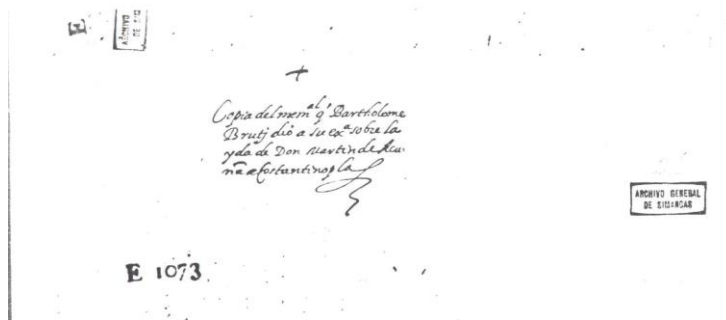 E
ARCHIVO
+
Copia del mem^al q^e Bartholome
Brutj dió a su ex^a sobre la
yda de Don Martin de Acu-
ña a Costantinopla
ARCHIVO GENERAL
DE SIMANCAS
E 1073